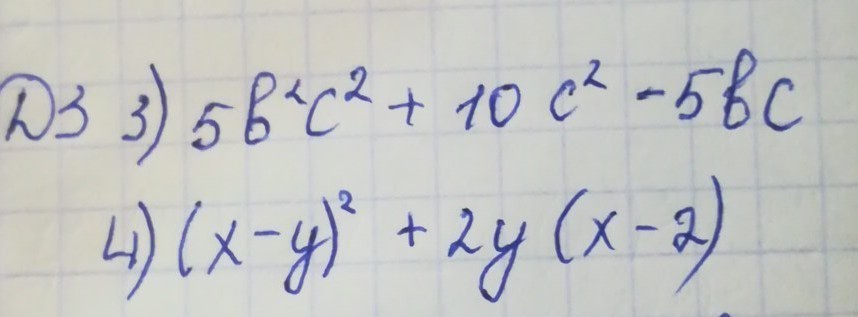 ДЗ 3) 5b²c² + 10 c² - 5bc
4) (x-y)² + 2y (x-2)